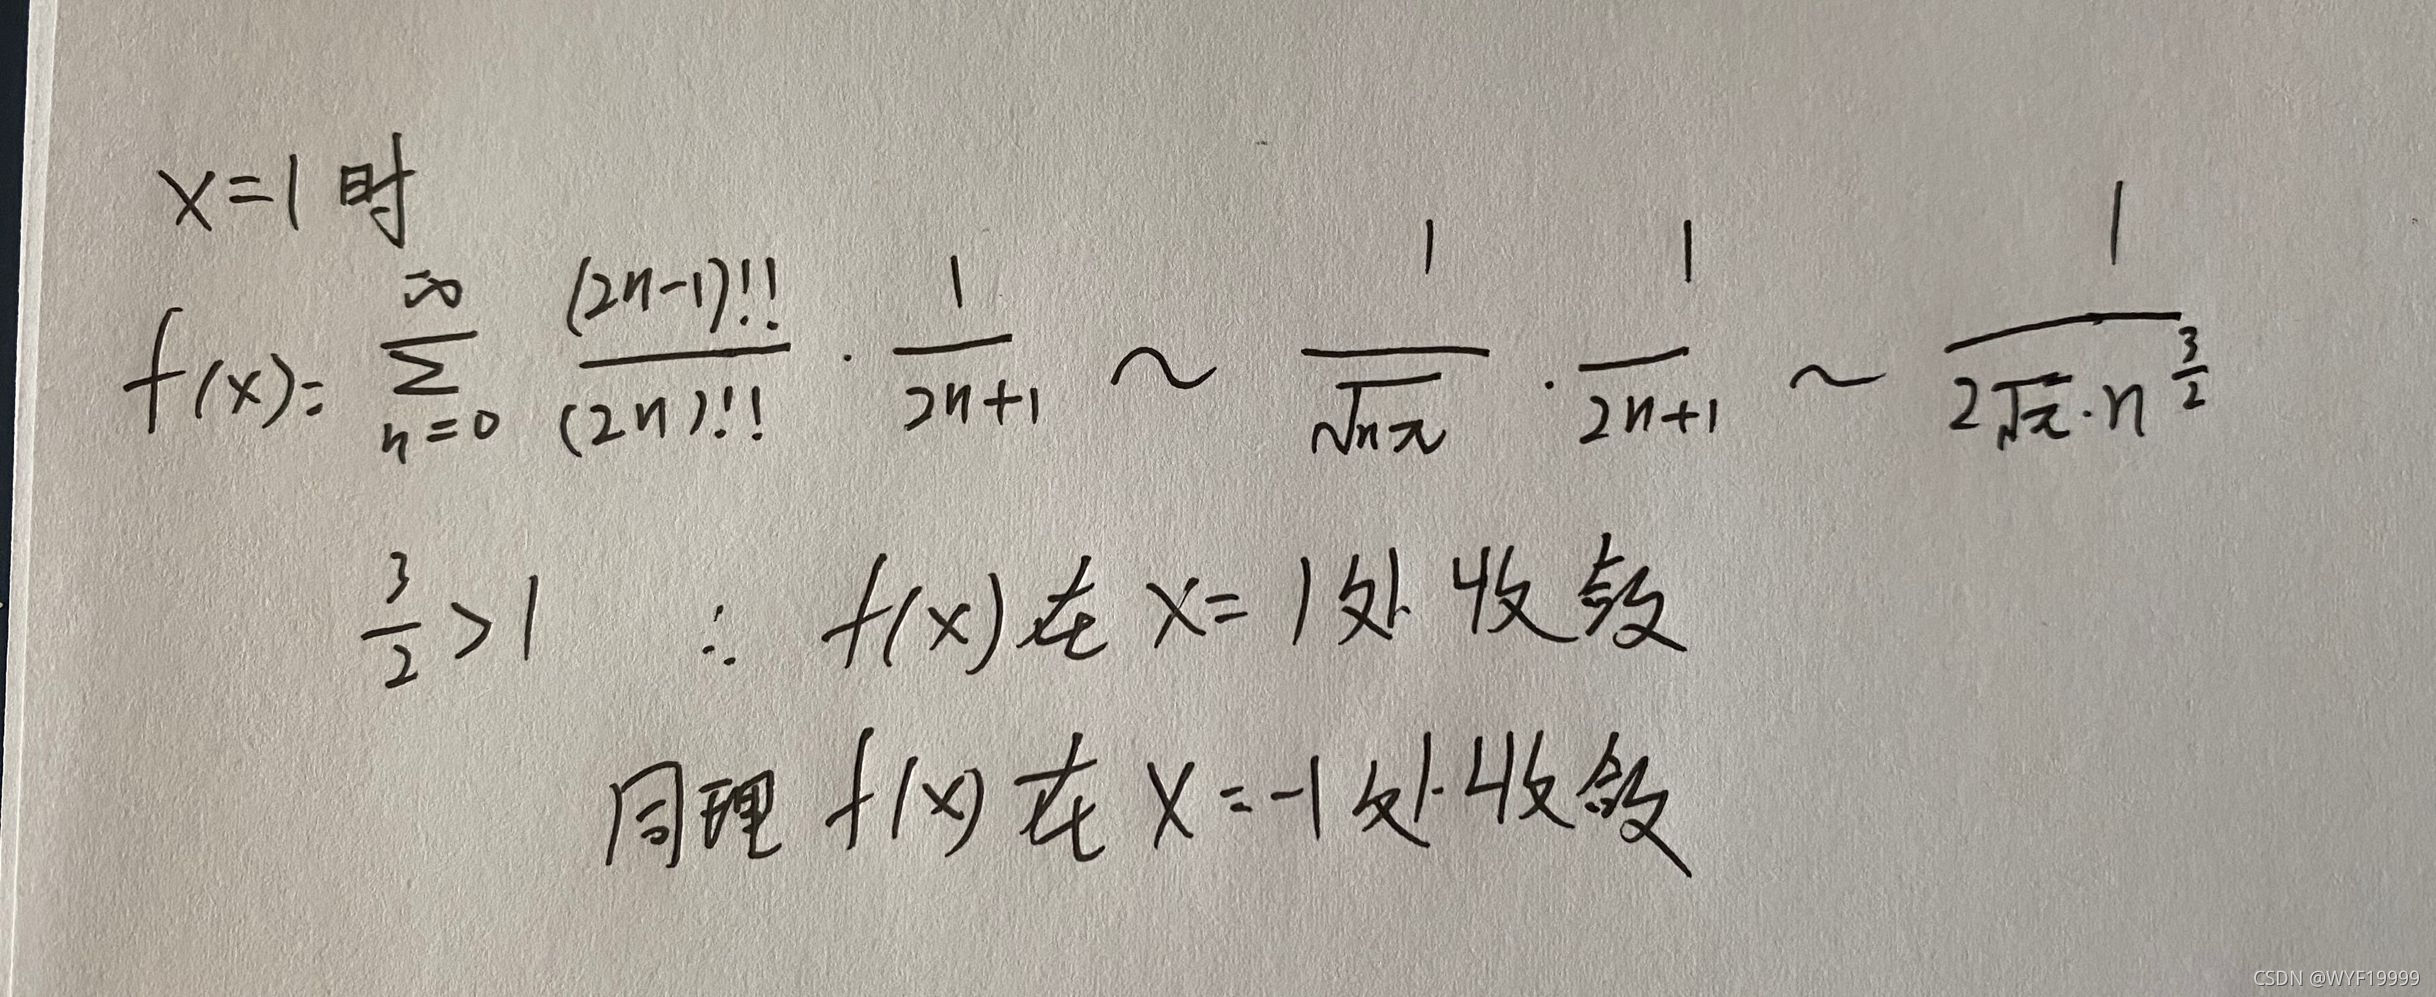 x=1时
f(x)= \sum_{n=0}^{\infty} \frac{(2n-1)!!}{(2n)!!} · \frac{1}{2n+1} ~ \frac{1}{\sqrt{nπ}} · \frac{1}{2n+1} ~ \frac{1}{2\sqrt{π}·n^{\frac{3}{2}}}
\frac{3}{2}>1 ∴ f(x)在x=1处收敛
同理 f(x)在x=-1处收敛
CSDN @WYF19999